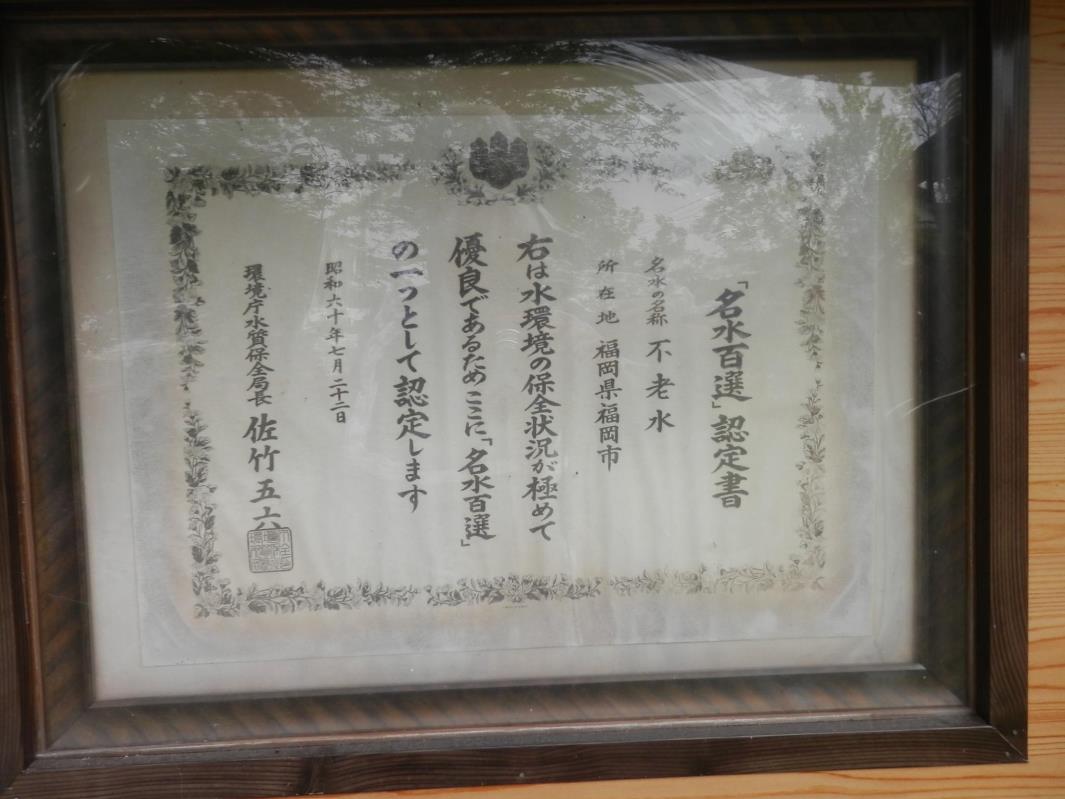 「名水百選」認定書
名水の名称 不老水
所在地 福岡県福岡市
右は水環境の保全状況が極めて
優良であるためここに「名水百選」
の一つとして認定します
昭和六十年七月二十二日
環境庁水質保全局長 佐竹五六